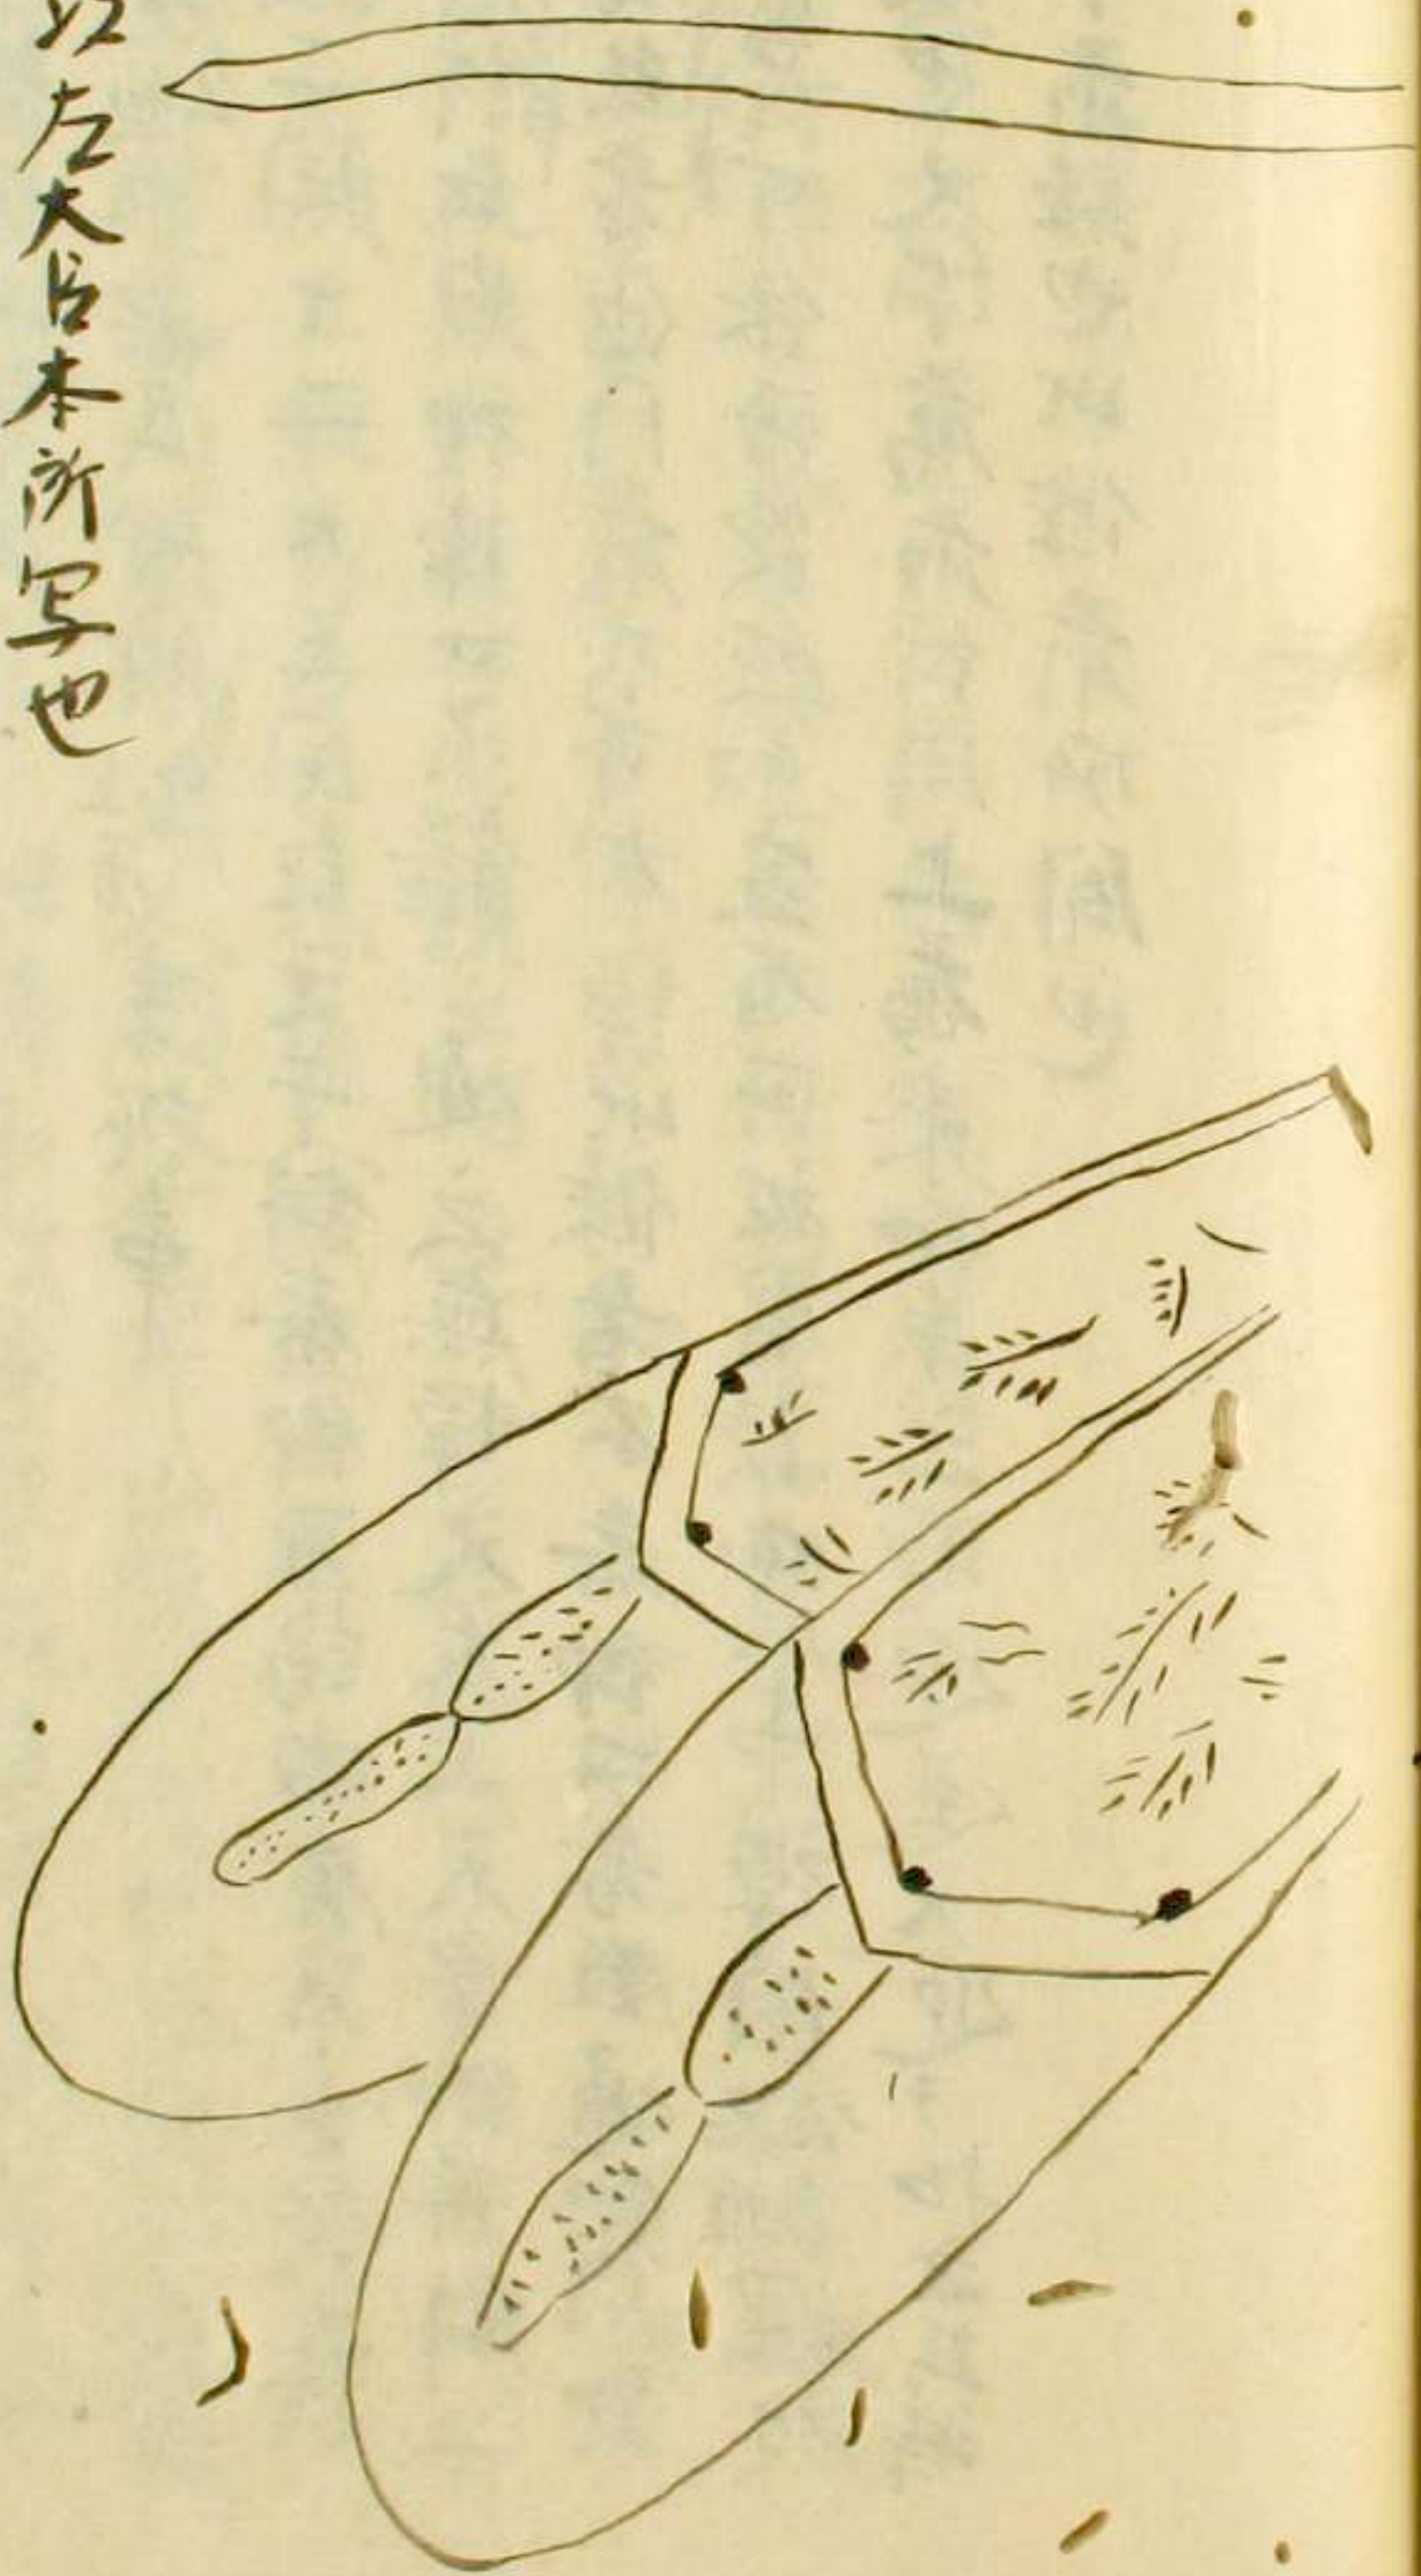 以左大臣本所写也